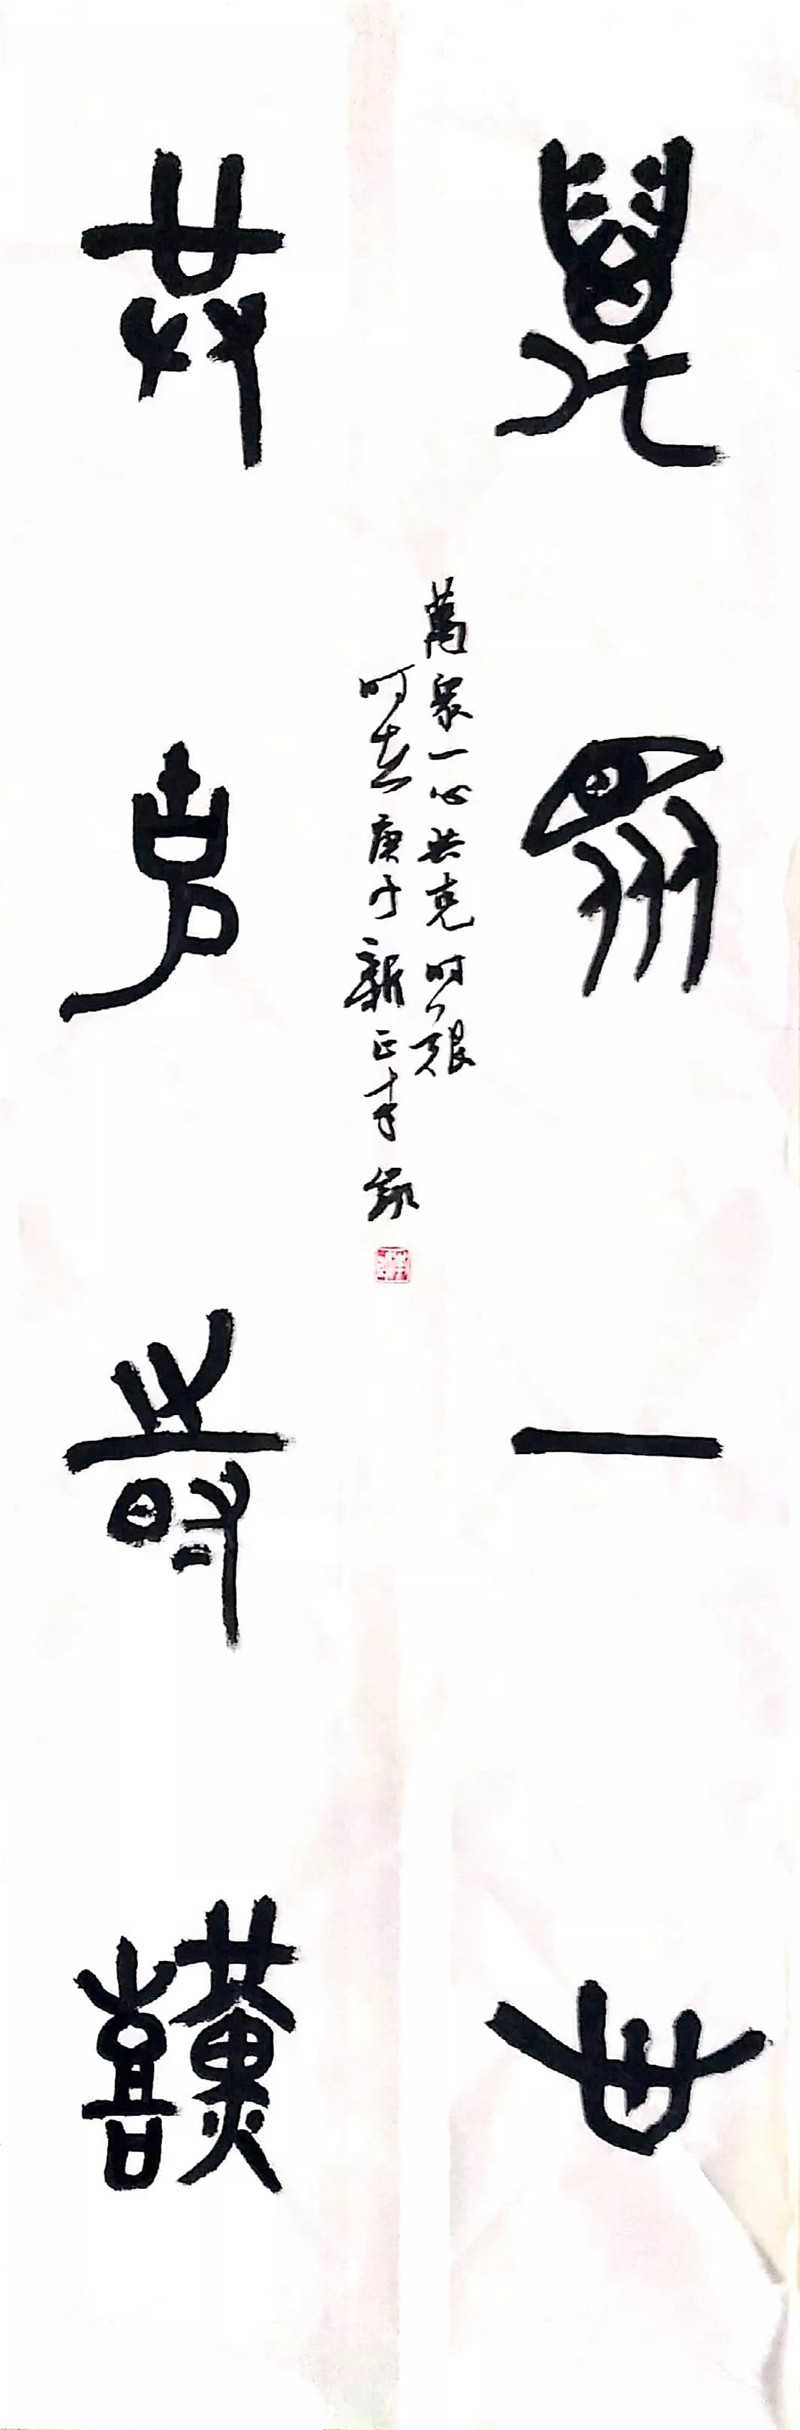 萬眾一心
共克時囏
萬眾一心共克時艱
时在庚子新正李